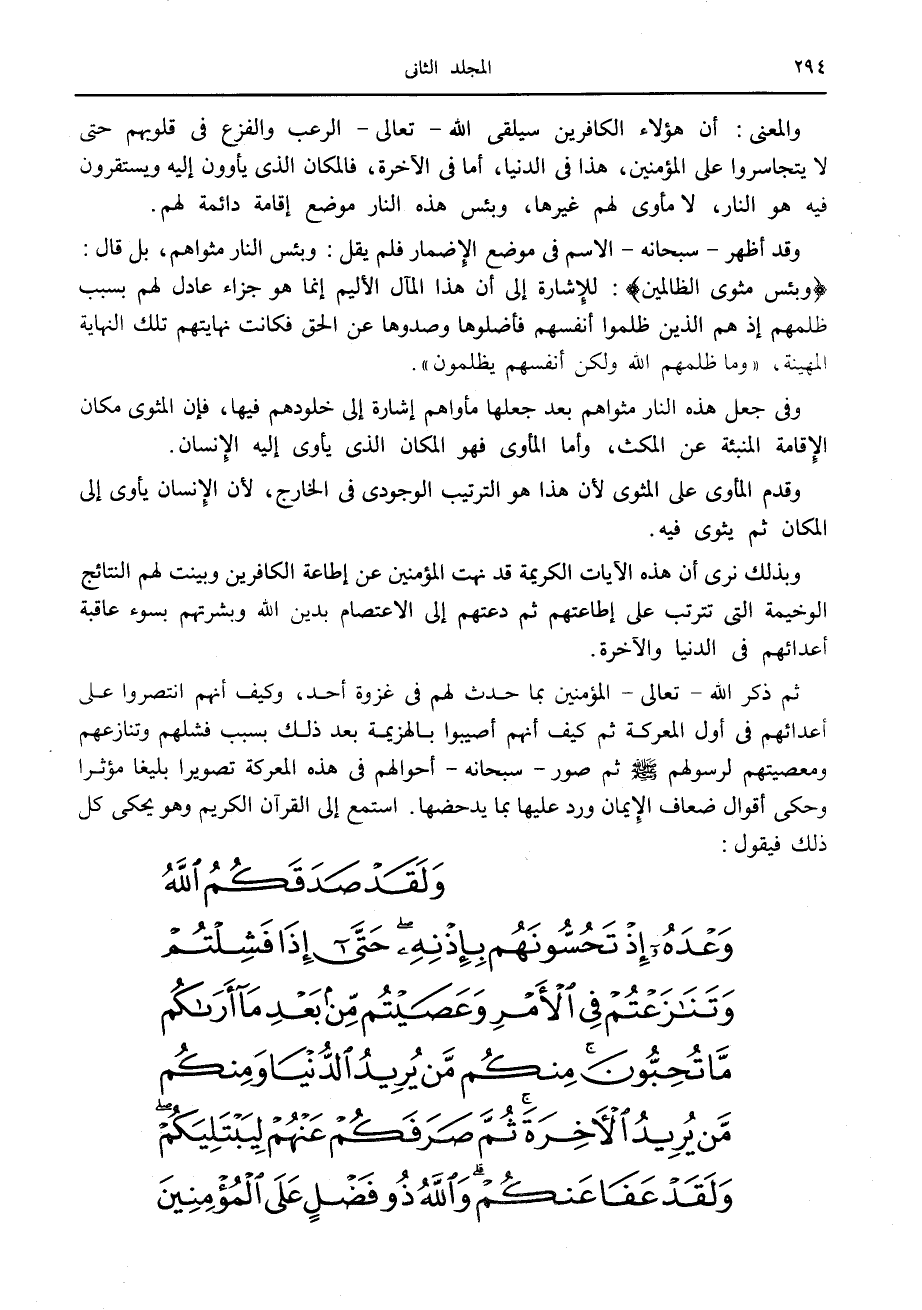 ٢٩٤ المجلد الثانى
والمعنى : أن هؤلاء الكافرين سيلقى الله - تعالى - الرعب والفزع فى قلوبهم حتى
لا يتجاسروا على المؤمنين، هذا فى الدنيا، أما فى الآخرة، فالمكان الذى يأوون إليه ويستقرون
فيه هو النار، لا مأوى لهم غيرها، وبئس هذه النار موضع إقامة دائمة لهم.
وقد أظهر - سبحانه - الاسم فى موضع الإضمار فلم يقل : وبئس النار مثواهم، بل قال :
﴿وبئس مثوى الظالمين﴾ : للإشارة إلى أن هذا المآل الأليم إنما هو جزاء عادل لهم بسبب
ظلمهم إذ هم الذين ظلموا أنفسهم فأضلوها وصدوها عن الحق فكانت نهايتهم تلك النهاية
المهينة، «وما ظلمهم الله ولكن أنفسهم يظلمون».
وفى جعل هذه النار مثواهم بعد جعلها مأواهم إشارة إلى خلودهم فيها، فإن المثوى مكان
الإقامة المنبئة عن المكث، وأما المأوى فهو المكان الذى يأوى إليه الإنسان.
وقدم المأوى على المثوى لأن هذا هو الترتيب الوجودى فى الخارج، لأن الإنسان يأوى إلى
المكان ثم يثوى فيه.
وبذلك نرى أن هذه الآيات الكريمة قد نهت المؤمنين عن إطاعة الكافرين وبينت لهم النتائج
الوخيمة التى تترتب على إطاعتهم ثم دعتهم إلى الاعتصام بدين الله وبشرتهم بسوء عاقبة
أعدائهم فى الدنيا والآخرة.
ثم ذكر الله - تعالى - المؤمنين بما حدث لهم فى غزوة أحد، وكيف أنهم انتصروا على
أعدائهم فى أول المعركة ثم كيف أنهم أصيبوا بالهزيمة بعد ذلك بسبب فشلهم وتنازعهم
ومعصيتهم لرسولهم ﷺ ثم صور - سبحانه - أحوالهم فى هذه المعركة تصويرا بليغا مؤثرا
وحكى أقوال ضعاف الإيمان ورد عليها بما يدحضها. استمع إلى القرآن الكريم وهو يحكى كل
ذلك فيقول :
وَلَقَدْ صَدَقَكُمُ ٱللَّهُ
وَعْدَهُۥٓ إِذْ تَحُسُّونَهُم بِإِذْنِهِۦۖ حَتَّىٰٓ إِذَا فَشِلْتُمْ
وَتَنَٰزَعْتُمْ فِى ٱلْأَمْرِ وَعَصَيْتُم مِّنۢ بَعْدِ مَآ أَرَىٰكُم
مَّا تُحِبُّونَۚ مِنكُم مَّن يُرِيدُ ٱلدُّنْيَا وَمِنكُم
مَّن يُرِيدُ ٱلْأَخِرَةَۚ ثُمَّ صَرَفَكُمْ عَنْهُمْ لِيَبْتَلِيَكُمْۖ
وَلَقَدْ عَفَا عَنكُمْۗ وَٱللَّهُ ذُو فَضْلٍ عَلَى ٱلْمُؤْمِنِينَ